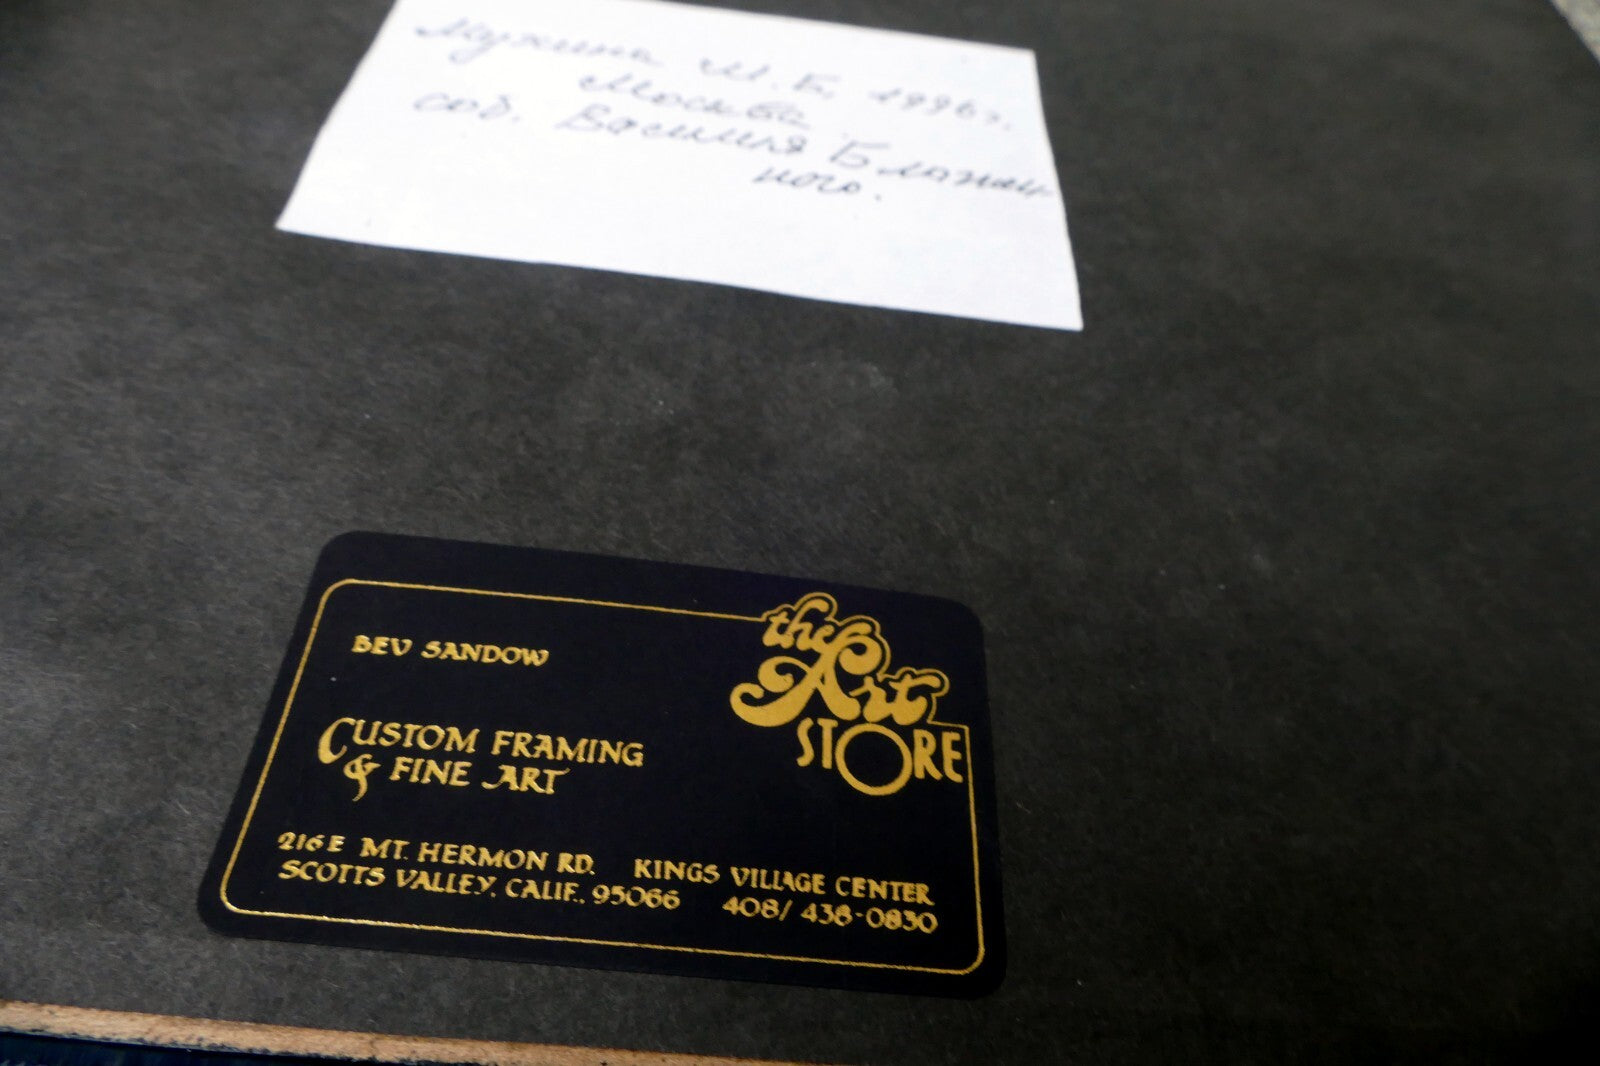 Мухина М.Б. 1996г.
Москва
соб. Василия Блажен
ного.
BEV SANDOW
the Art
STORE
CUSTOM FRAMING
& FINE ART
216E MT. HERMON RD. KINGS VILLAGE CENTER
SCOTTS VALLEY, CALIF., 95066 408/438-0830